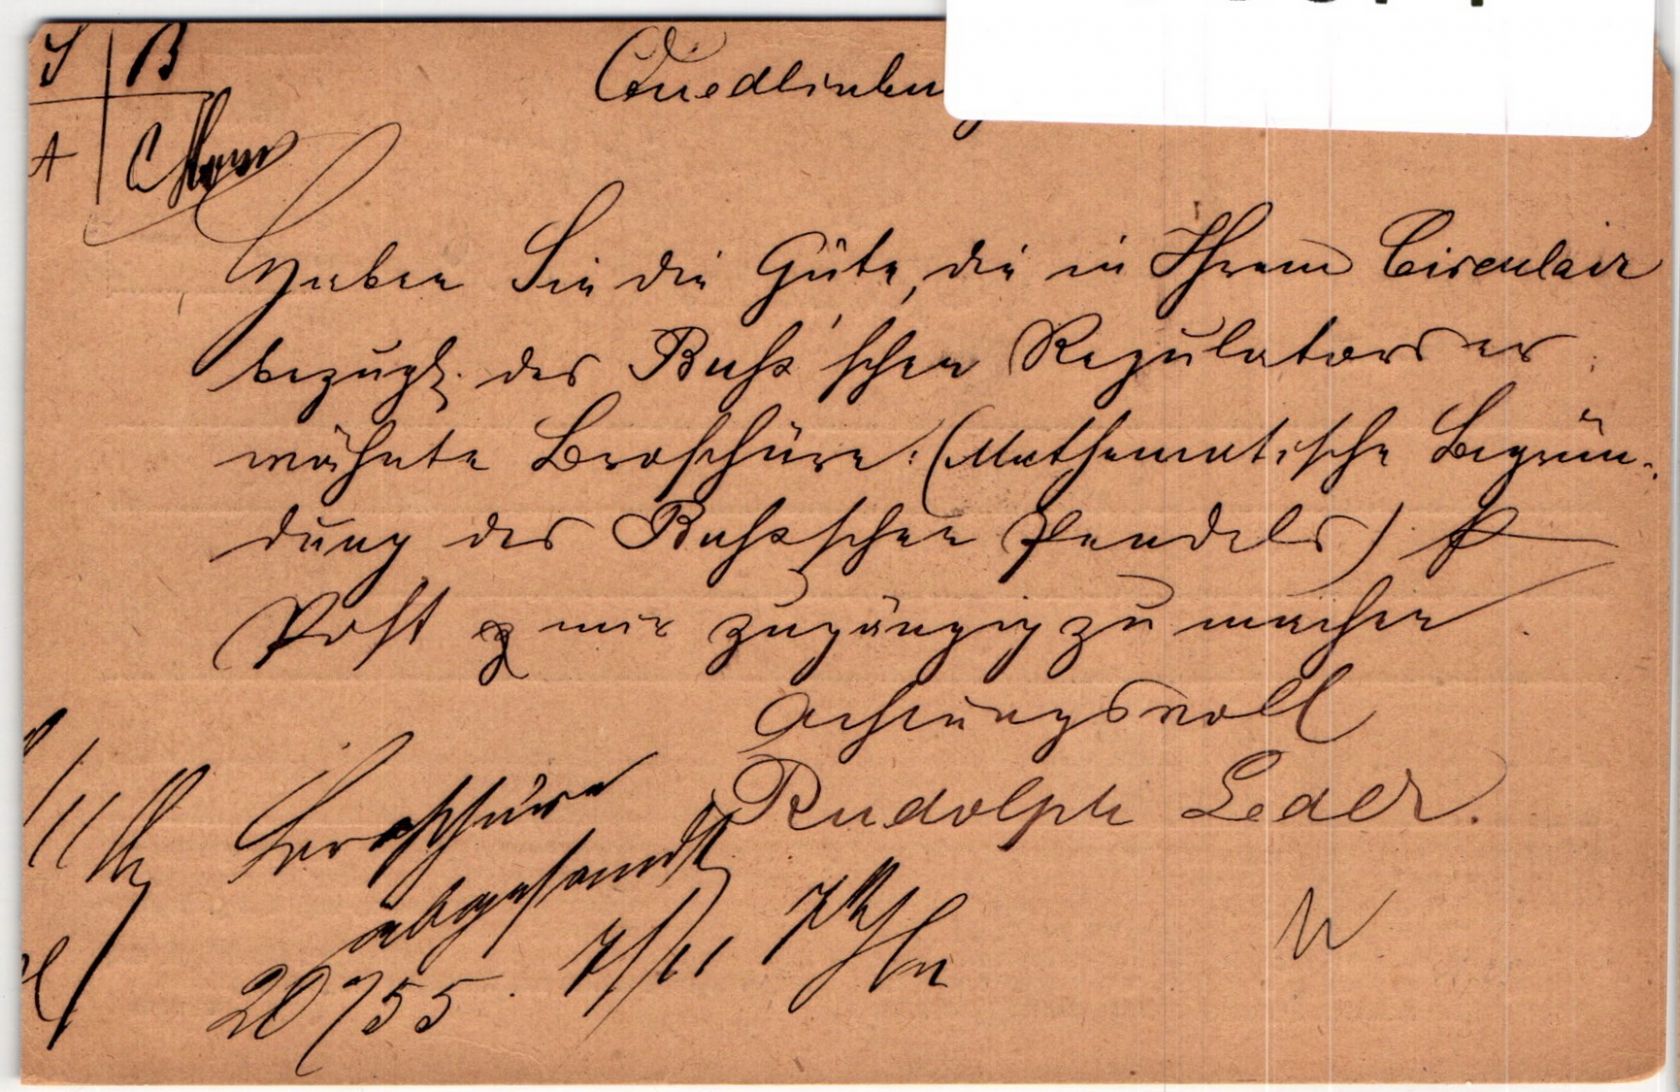 S B
A C
Quedlinbu
Haben Sie die Güte, die in Ihrem Circulair
bezügl. des Buß'schen Regulators er
wähnte Broschüre: (Mathematische Begrün-
dung des Bußschen Pendels) p
Post mir zugängig zu machen
Achtungsvoll
Rudolph Leder.
Broschüre
abgesandt
7/11
20755.